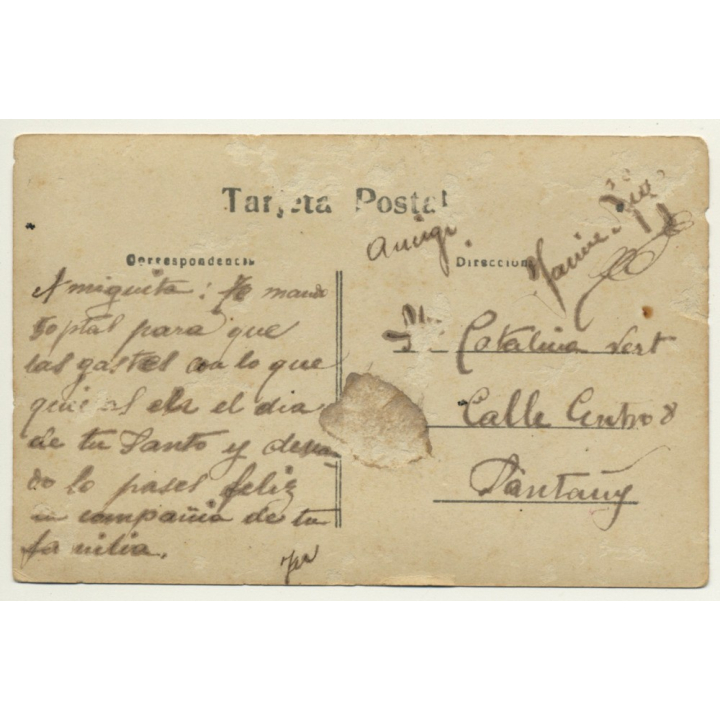 Tarjeta Postal
Correspondencia
Dirección
Amiguita: Te mando
50 ptas para que
las gastes con lo que
quieras en el dia
de tu Santo y desean
do lo pases feliz
en compañia de tu
familia.
Catalina Vert
Calle Centro 8
Santañy